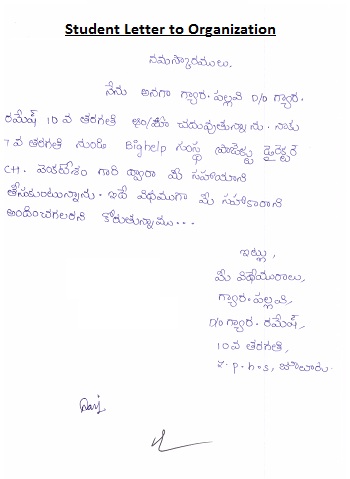 Student Letter to Organization
నమస్కారములు.
నేను అనగా గ్యార. పల్లవి D/O గ్యార.
రమేష్ 10 వ తరగతి చదువుతున్నాను. నాకు
7 వ తరగతి నుండి Bighelp సంస్థ ప్రాజెక్టు డైరెక్టర్
CH. వెంకటేశం గారి ద్వారా మీ సహాయాని
తీసుకుంటున్నాను. ఇదే విధముగా మీ సహాకారాని
అందించగలరని కోరుతున్నాము...
ఇట్లు,
మీ విధేయురాలు,
గ్యార. పల్లవి,
D/O గ్యార. రమేష్,
10 వ తరగతి,
z. p. h. s,